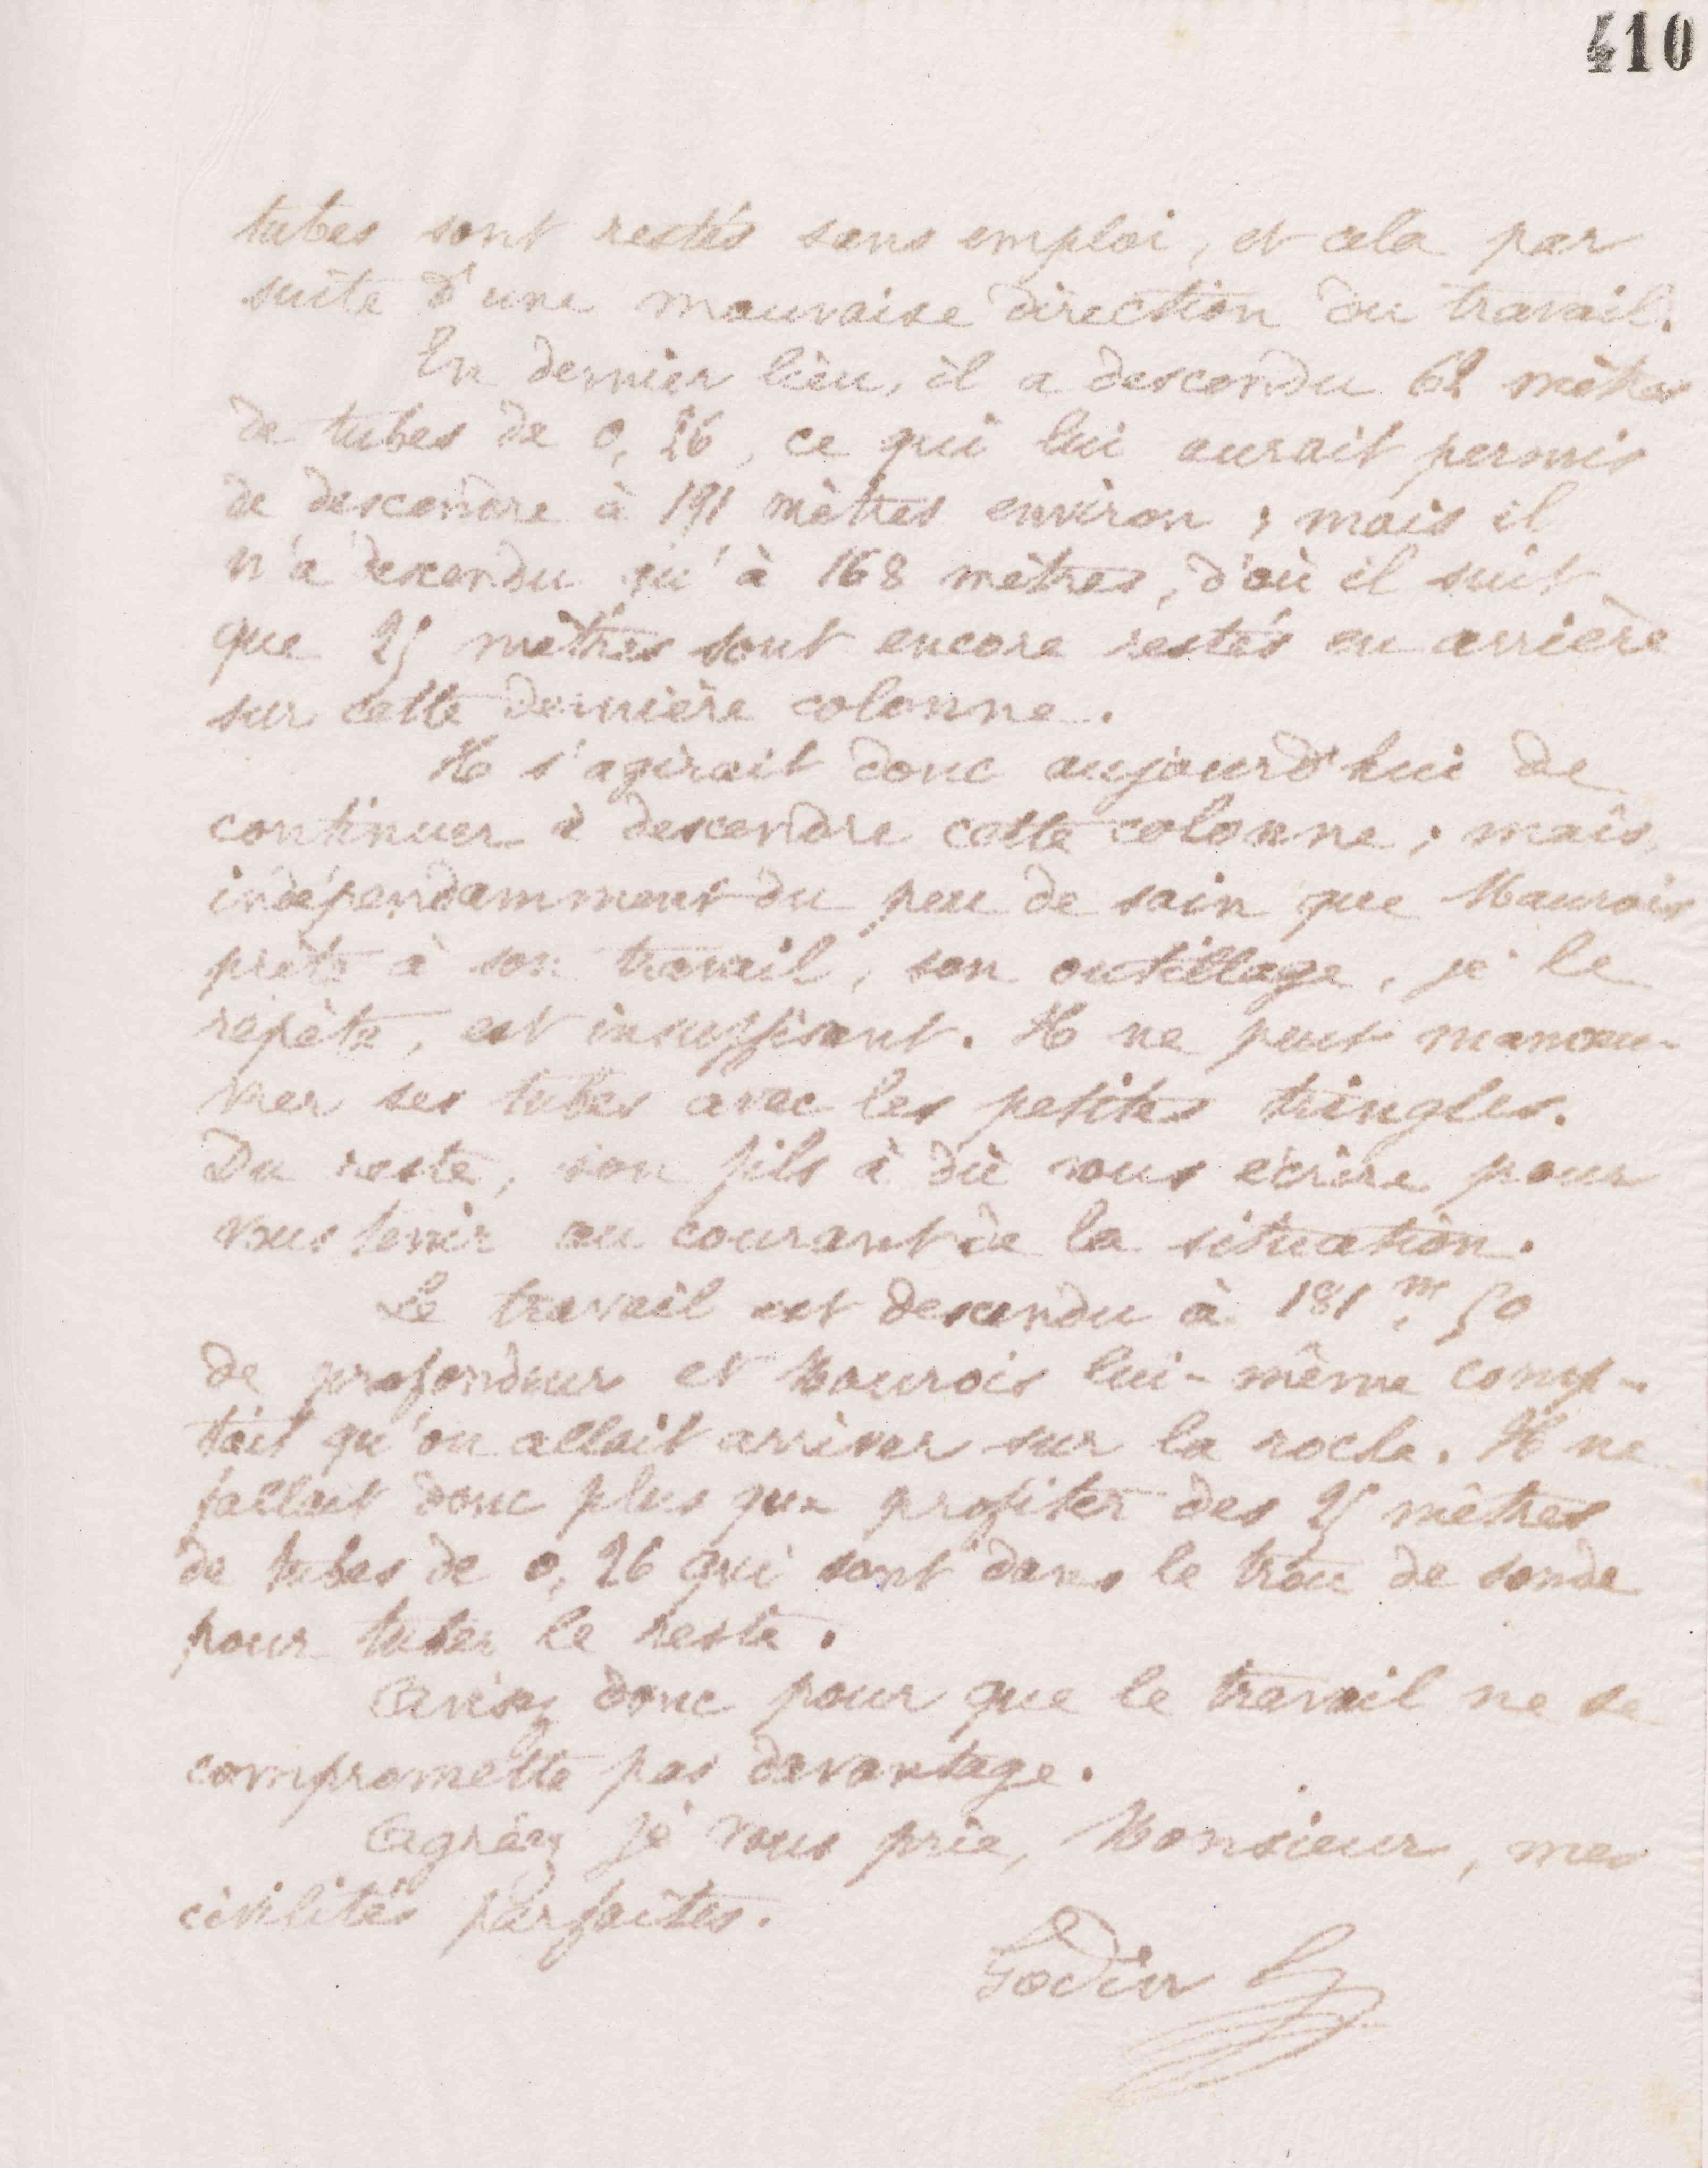 410
tubes sont restés sans emploi, et cela par
suite d'une mauvaise direction du travail.
En dernier lieu, il a descendu 62 mètres
de tubes de 0,26, ce qui lui aurait permis
de descendre à 191 mètres environ ; mais il
n'a descendu qu'à 168 mètres, d'où il suit
que 25 mètres sont encore restés en arrière
sur cette dernière colonne.
Il s'agirait donc aujourd'hui de
continuer à descendre cette colonne ; mais,
indépendamment du peu de soin que Maurois
prête à son travail, son outillage, je le
répète, est insuffisant. Il ne peut manœu-
vrer ses tubes avec les petites tringles.
Du reste, son fils à dû vous écrire pour
vous tenir au courant de la situation.
Le travail est descendu à 181 m, 50
de profondeur et Maurois lui-même comp-
tait qu'on allait arriver sur la roche. Il ne
fallait donc plus que profiter des 25 mètres
de tubes de 0,26 qui sont dans le trou de sonde
pour tuber le reste.
Avisez donc pour que le travail ne se
compromette pas davantage.
Agréez je vous prie, Monsieur, mes
civilités parfaites.
Godin